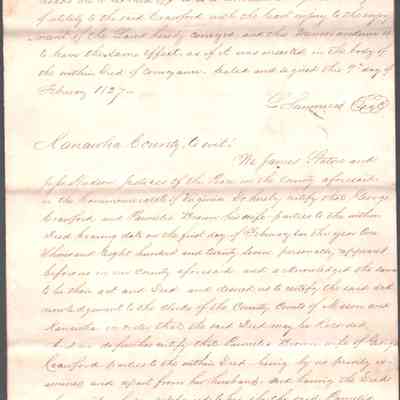 of utility to the said Crawford with the least injury to the enjoy
ment of the Land hereby conveyed, and this Memorandum is
to have the same effect as if it was inserted in the body of
the within Deed of conveyance. Sealed and signed this 9th day of
February 1827
Kanawha County, to wit:
We James Staton and
Justices of the Peace in the County aforesaid
in the Commonwealth of Virginia Do hereby certify that George
Crawford and Pamelia Brown his wife parties to the within
Deed bearing date on the first day of February in the year One
thousand Eight hundred and twenty seven personally appeared
before us in our County aforesaid and acknowledged the same
to be their act and Deed and desired us to certify the said ack
nowledgement to the clerks of the County Courts of Mason and
Kanawha in order that the said Deed may be Recorded.
And we do further certify that Pamelia Brown wife of George
Crawford parties to the within Deed being by us privily ex
amined and apart from her husband, and having the Deed
she the said Pamelia